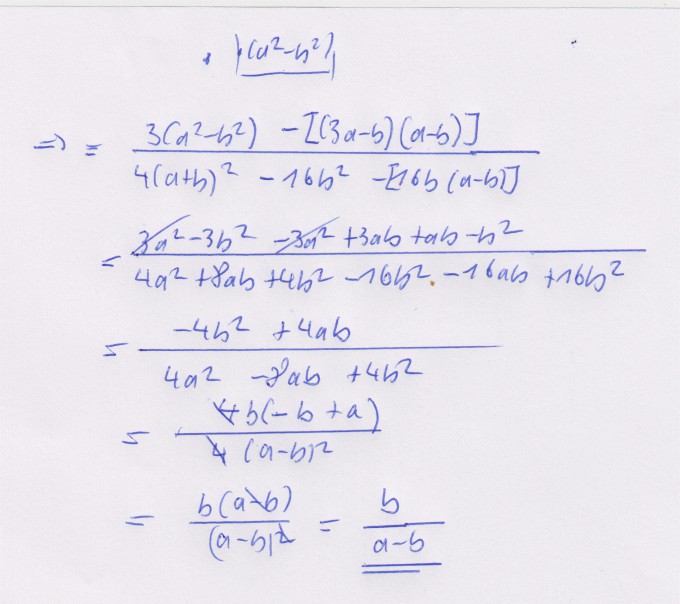 · |(a²-b²)|
=> = 3(a²-b²) -[(3a-b)(a-b)] / 4(a+b)² - 16b² -[16b(a-b)]
= 3a²-3b² -3a² +3ab +ab -b² / 4a² +8ab +4b² -16b² -16ab +16b²
= -4b² +4ab / 4a² -8ab +4b²
= 4b(-b +a) / 4 (a-b)²
= b(a-b) / (a-b)² = b / a-b